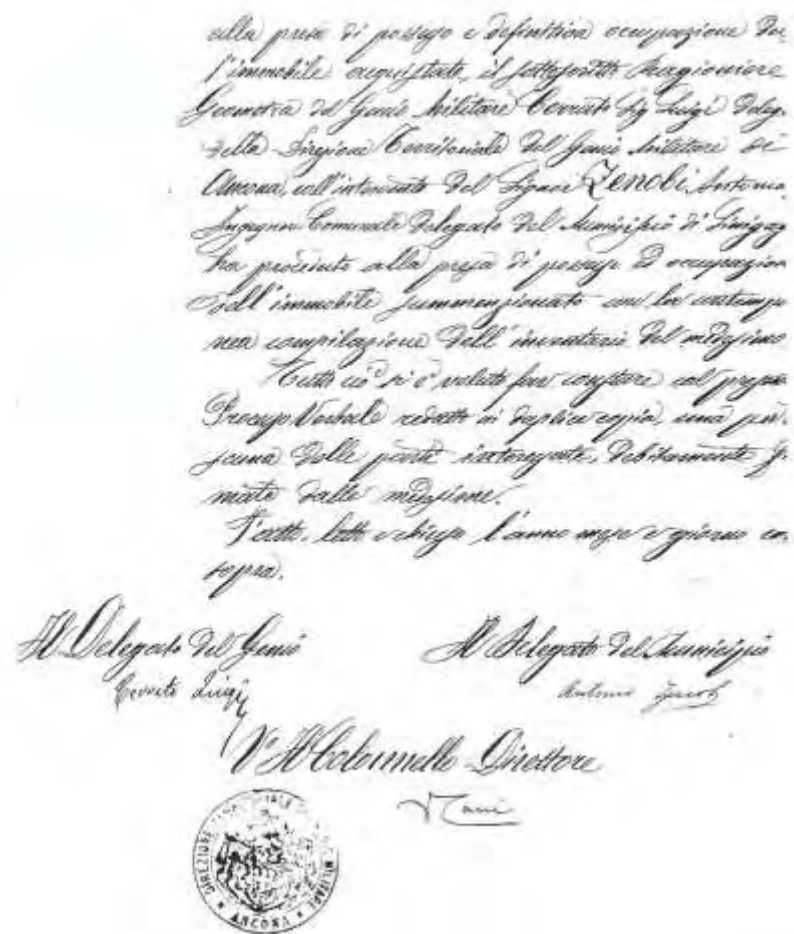 alla presa di possesso e definitiva occupazione del
l'immobile acquistato, il sottoscritto Ragioniere
Geometra del Genio Militare Cerrato Sig Luigi Deleg.
della Direzione Territoriale del Genio Militare di
Ancona, coll'intervento del Signor Zenobi Antonio
Ingegnere Comunale Delegato del Municipio di Sinigag
ha proceduto alla presa di possesso ed occupazion
dell'immobile summenzionato con la contempo
nea compilazione dell'inventario del medesimo
Tutto ciò si è voluto far constare col presen
Processo Verbale redatto in duplice copia, una per
scuna delle parti interessate, debitamente fir
mate dalle medesime.
Fatto, letto e chiuso l'anno mese e giorno come
sopra.
Il Delegato del Genio
Cerrato Luigi
Il Delegato del Municipio
Antonio Zenobi
V° Il Colonnello Direttore
DIREZIONE TERRITORIALE DEL GENIO MILITARE
ANCONA